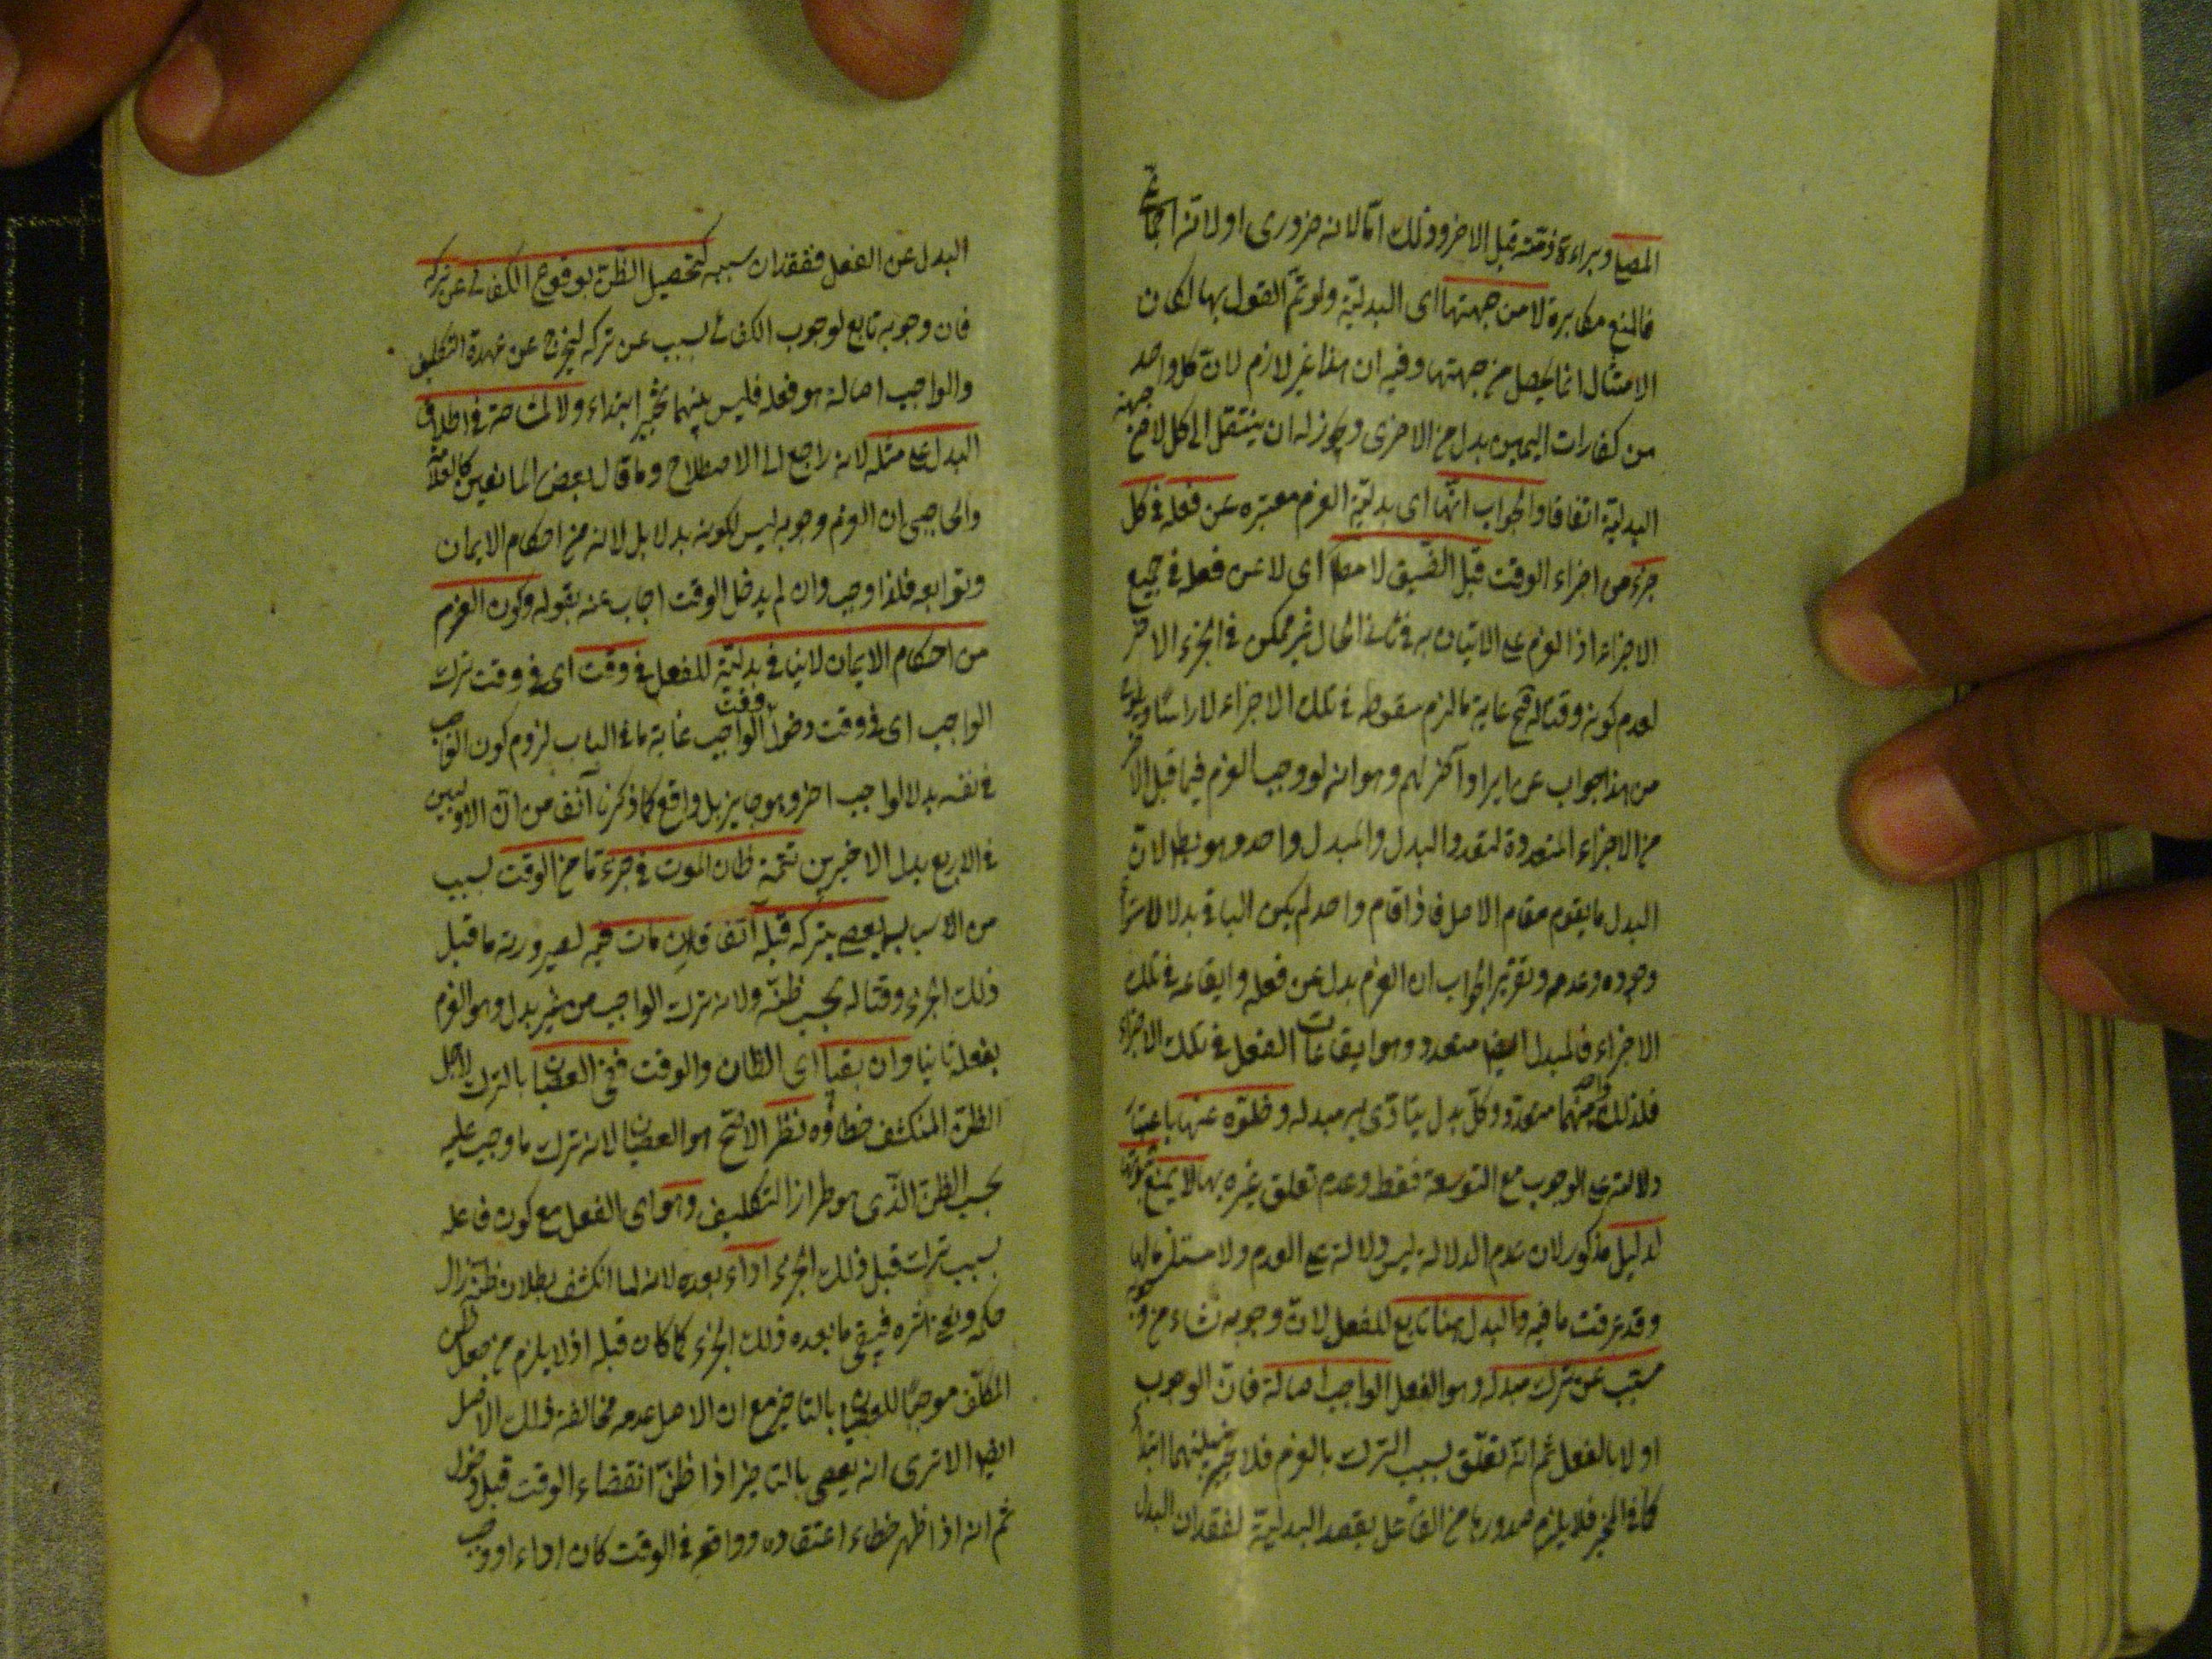 المصلي وبراءة ذمته قبل الاخر وذلك اما لانه ضروري او لانه اجماعي
فالمنع مكابرة لا من جهتها اي البدلية ولو تم القول بها لكان
الامتثال انما يحصل من جهتها وفيه ان هذا غير لازم لان كل واحد
من كفارات اليمين بدل من الاخرى ويجوز له ان ينتقل الى كل لا من جهة
البدلية اتفاقا والجواب انها اي بدلية العزم معتبرة عن فعله في كل
جزء من اجزاء الوقت قبل الضيق لا مطلقا اي لا عن فعله في جميع
الاجزاء اذ العزم على الاتيان به في ثاني الحال غير ممكن في الجزء الاخر
لعدم كونه وقتا له فح غاية ما لزم سقوطه في تلك الاجزاء لا راسا
من هذا جواب عن ايراد آخر لهم وهو انه لو وجب العزم فيما قبل الاخر
من الاجزاء المتعددة لتعدد البدل والمبدل واحد وهو بط لان
البدل ما يقوم مقام الاصل فاذا قام واحد لم يكن الباقي بدلا لاستواء
وجوده وعدمه وتقرير الجواب ان العزم بدل عن فعله وايقاعه في تلك
الاجزاء فالمبدل ايضا متعدد وهو ايقاعات الفعل في تلك الاجزاء
فلذلك واحد منهما متعدد وكل بدل يتادى به مبدله وخلوه عنها باعتبار
دلالته على الوجوب مع التوسعة فقط وعدم تعلق غيره بها لا يمنع ثبوتها
لدليل مذكور لان عدم الدلالة ليس دلالة على العدم ولا مستلزما لها
وقد عرفت ما فيه والبدل هنا تابع للفعل لان وجوبه نشاء من
مسبب عن ترك مبدله وهو الفعل الواجب اصالة فان الوجوب
اولا بالفعل ثم انه تعلق بسبب الترك بالعزم فلا تخيير بينهما ابتداء
كما في المخير فلا يلزم صدورها من الفاعل بقصد البدلية لفقدان البدل
البدل عن الفعل ففقدان سببه كتحصيل الظن بوقوع الكفائي عن تركه
فان وجوبه تابع لوجوب الكفائي لسبب عن تركه ليخرج عن عهدة التكليف
والواجب اصالة هو فعله فليس بينهما تخيير ابتداء ولا مشاحة في اطلاق
البدل على مثله لانه راجع الى الاصطلاح وما قال بعض المانعين كالعلامة
والحاجبي ان العزم وجوبه ليس لكونه بدلا بل لانه من احكام الايمان
وتوابعه فلذا وجب وان لم يدخل الوقت اجاب عنه بقوله وكون العزم
من احكام الايمان لا ينافي بدليته للفعل في وقت اي في وقت ترك
الواجب اي في وقت دخول وقت الواجب غاية ما في الباب لزوم كون الواجب
في نفسه بدلا لواجب اخر وهو جايز بل واقع كما ذكرنا آنفا من ان الاوليين
في الاربع بدل الاخيرين تتمة ظان الموت في جزء ما من الوقت لسبب
من الاسباب يعصي بتركه قبله اتفاقا ان مات فيه لصيرورته ما قبل
ذلك الجزء وقتا له بحسب ظنه ولانه ترك الواجب من غير بدل وهو العزم
بفعله ثانيا وان بقيا اي الظان والوقت ففي العصيان بالترك لاجل
الظن المنكشف خطاؤه نظر الاصح هو العصيان لانه ترك ما وجب عليه
بحسب الظن الذي هو طراز التكليف وهو اي الفعل مع كون فاعله
بسبب ترك قبل ذلك الجزء اداء بعده لانه لما انكشف بطلان ظنه زال
حكمه ونحي اثره فبقي ما بعده ذلك الجزء كما كان قبله اذ لا يلزم من جعل ظن
المكلف موجبا للعصيان بالتاخير مع ان الاصل عدمه مخالفة ذلك الاصل
ايضا الا ترى انه يعصي بالتاخير اذا ظن انقضاء الوقت قبل دخول
ثم انه اذا ظهر خطاء اعتقاده وواقعه في الوقت كان اداء او وجب